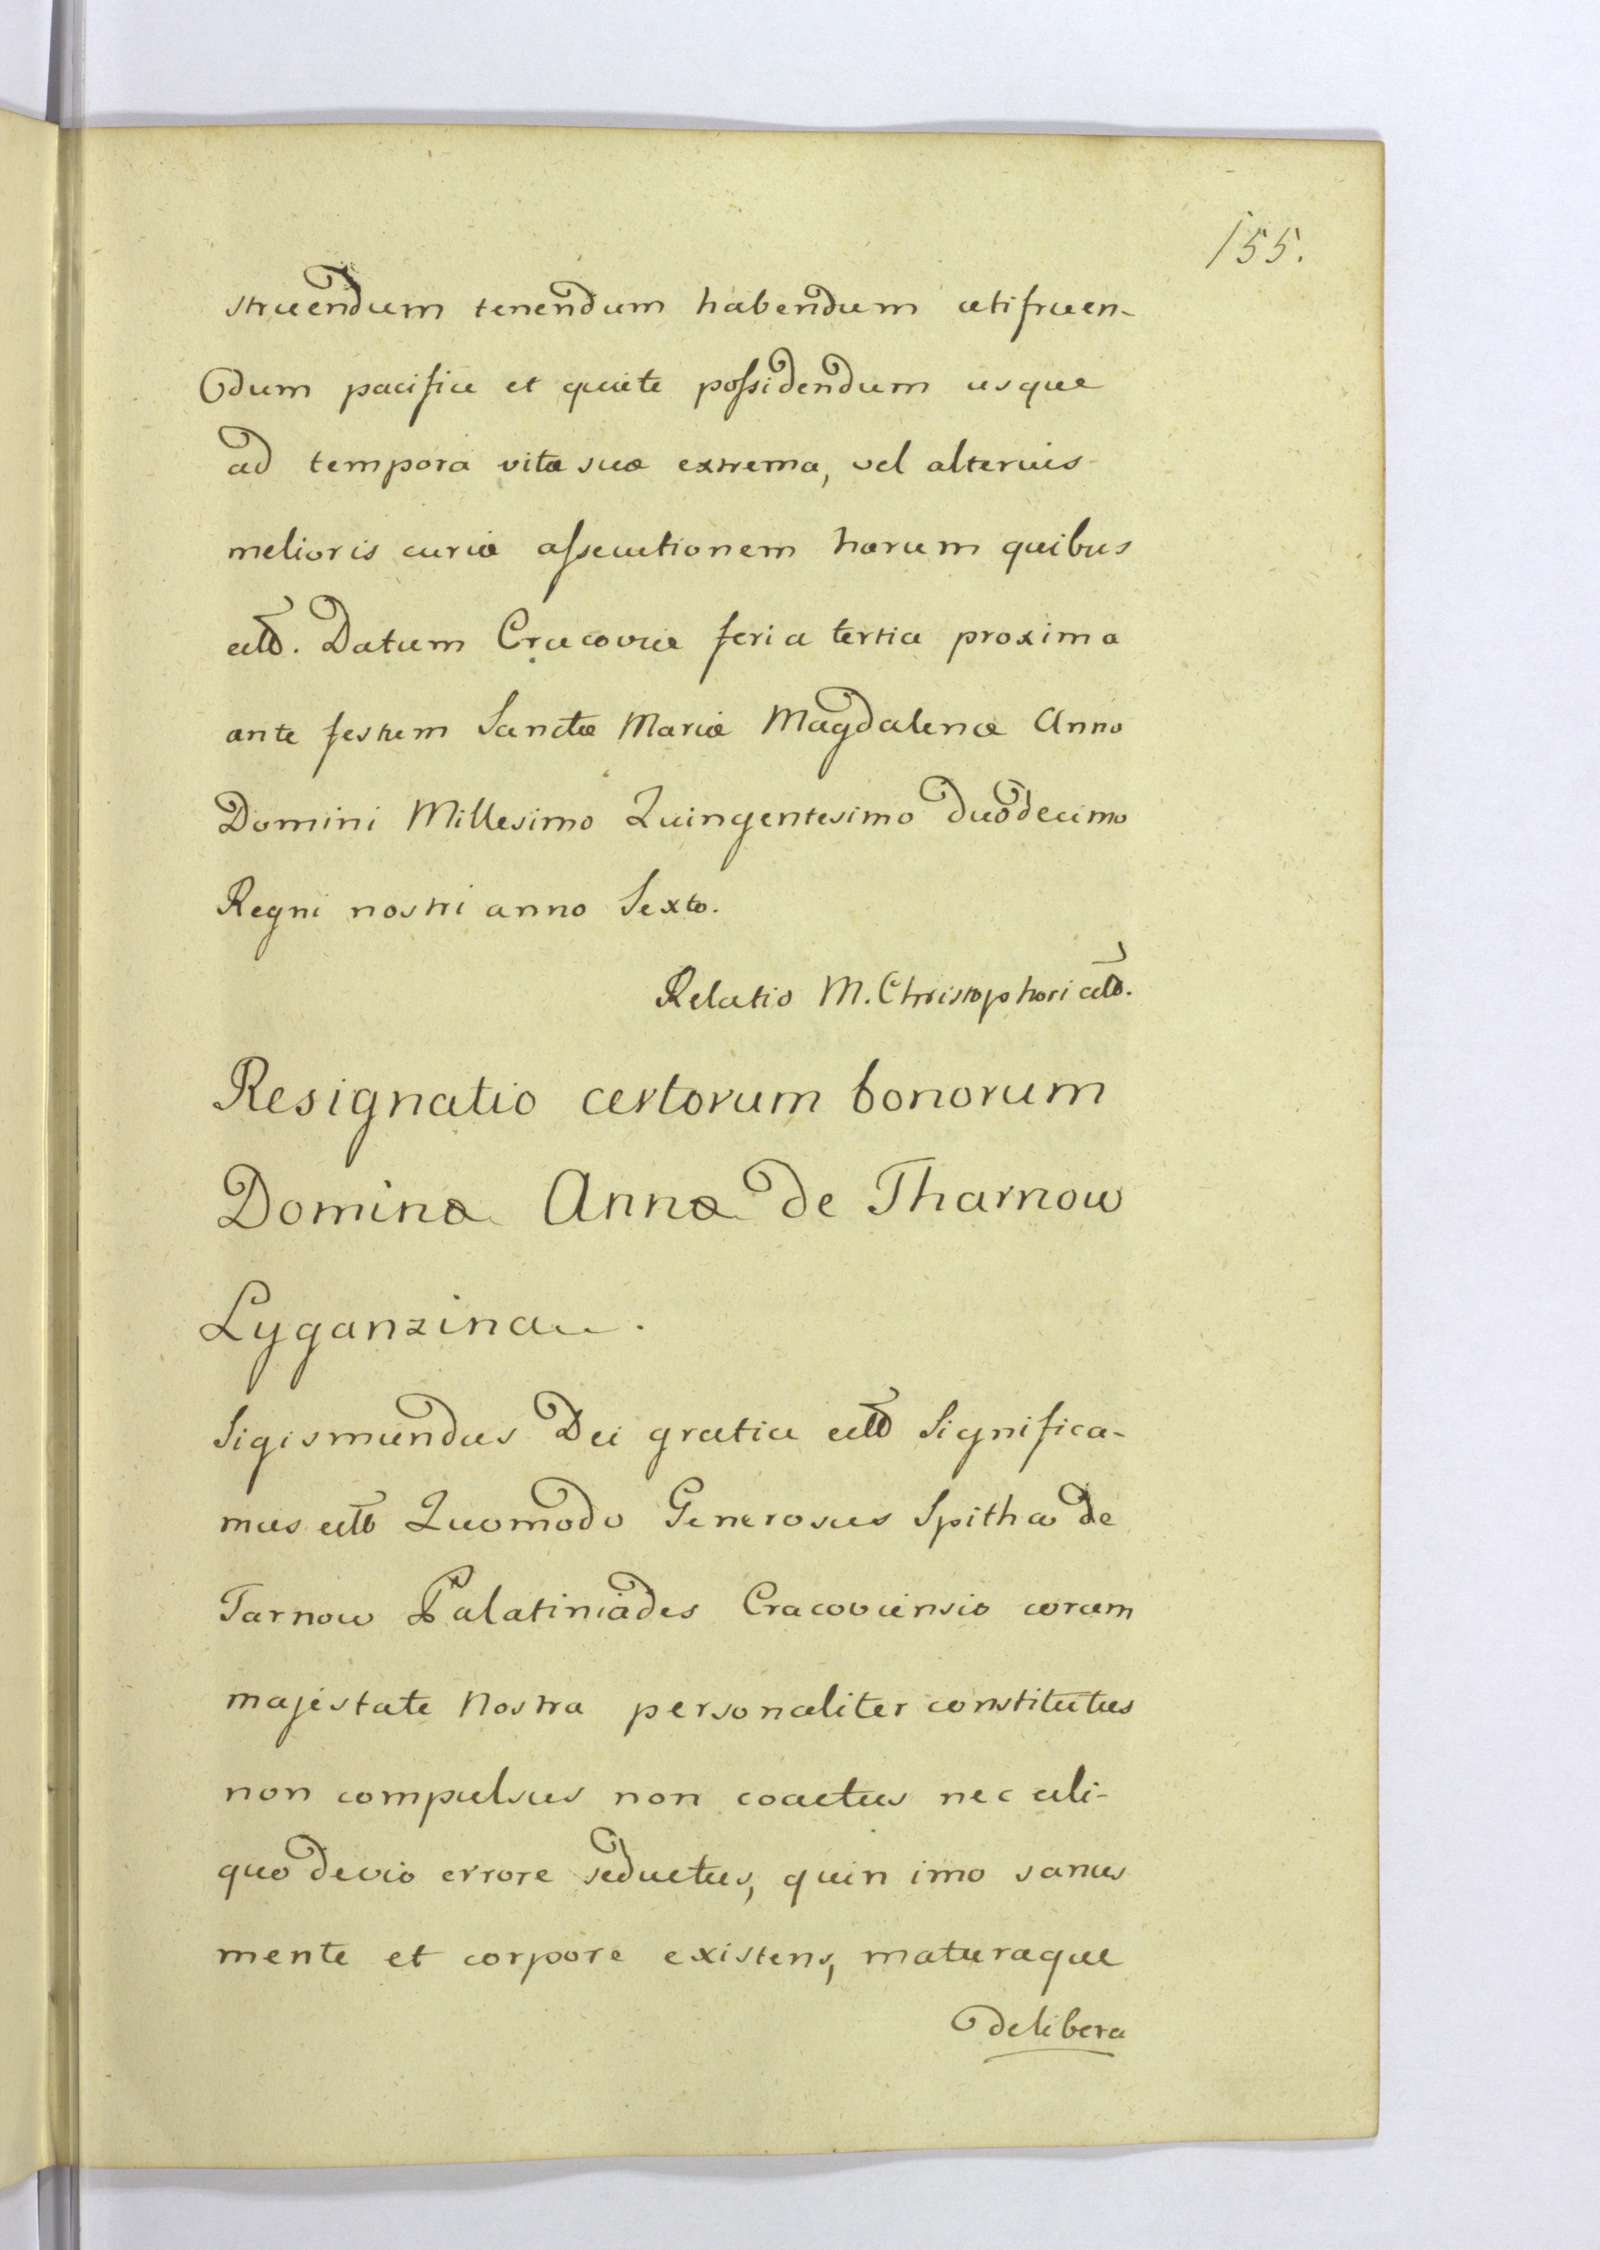 155.
struendum tenendum habendum utifruen-
dum pacifice et quiete possidendum usque
ad tempora vitæ suæ extrema, vel alterius
melioris curiæ assecutionem harum quibus
etc. Datum Cracoviæ feria tertia proxima
ante festum Sanctæ Mariæ Magdalenæ Anno
Domini Millesimo Quingentesimo duodecimo
Regni nostri anno Sexto.
Relatio M. Christophori etc.
Resignatio certorum bonorum
Dominæ Annæ de Tharnow
Lyganzinae.
Sigismundus Dei gratia etc Significa-
mus etc Quomodo Generosus Spitha de
Tarnow Palatiniades Cracoviensis coram
majestate Nostra personaliter constitutus
non compulsus non coactus nec ali-
quo devio errore seductus, quin imo sanus
mente et corpore existens, maturaque
delibera